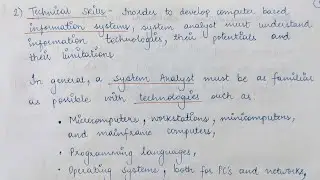 2) Technical Skills - Inorder to develop computer based
information systems, system analyst must understand
information technologies, their potentials and
their limitations
In general, a system Analyst must be as familiar
as possible with technologies such as
• Microcomputers, workstations, minicomputers,
and mainframe computers,
• Programming languages,
• Operating systems, both for PC's and networks,